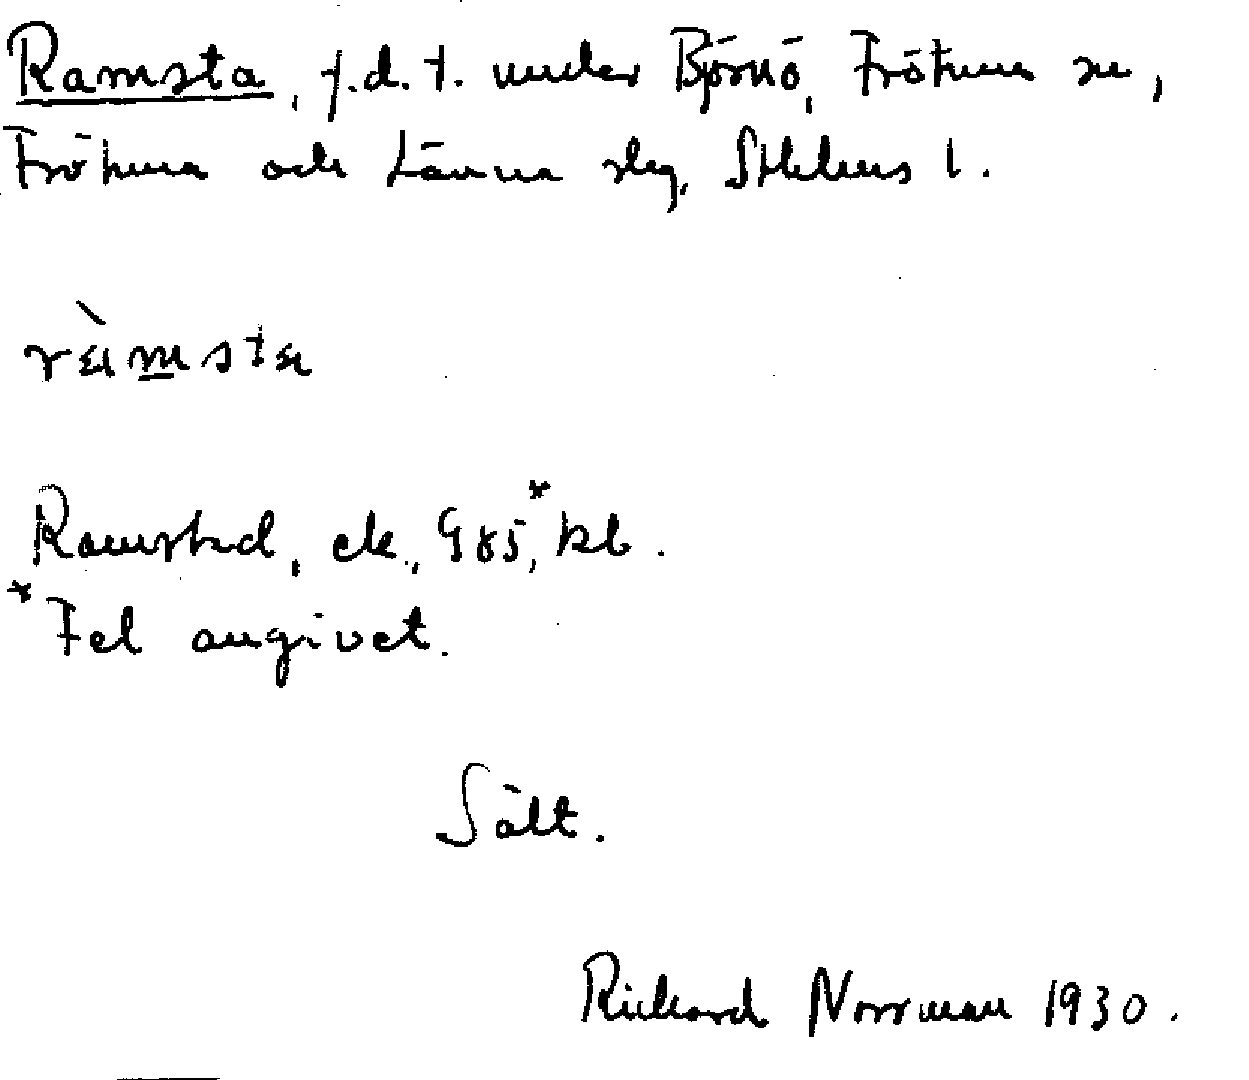 Ramsta, f.d. t. under Björnö, Frötuna sn,
Frötuna och Länna slg, Sthlms l.
ràmsta
Ramstad, ek., G 85,* kb.
* Fel angivet.
Sält.
Rickard Norrman 1930.